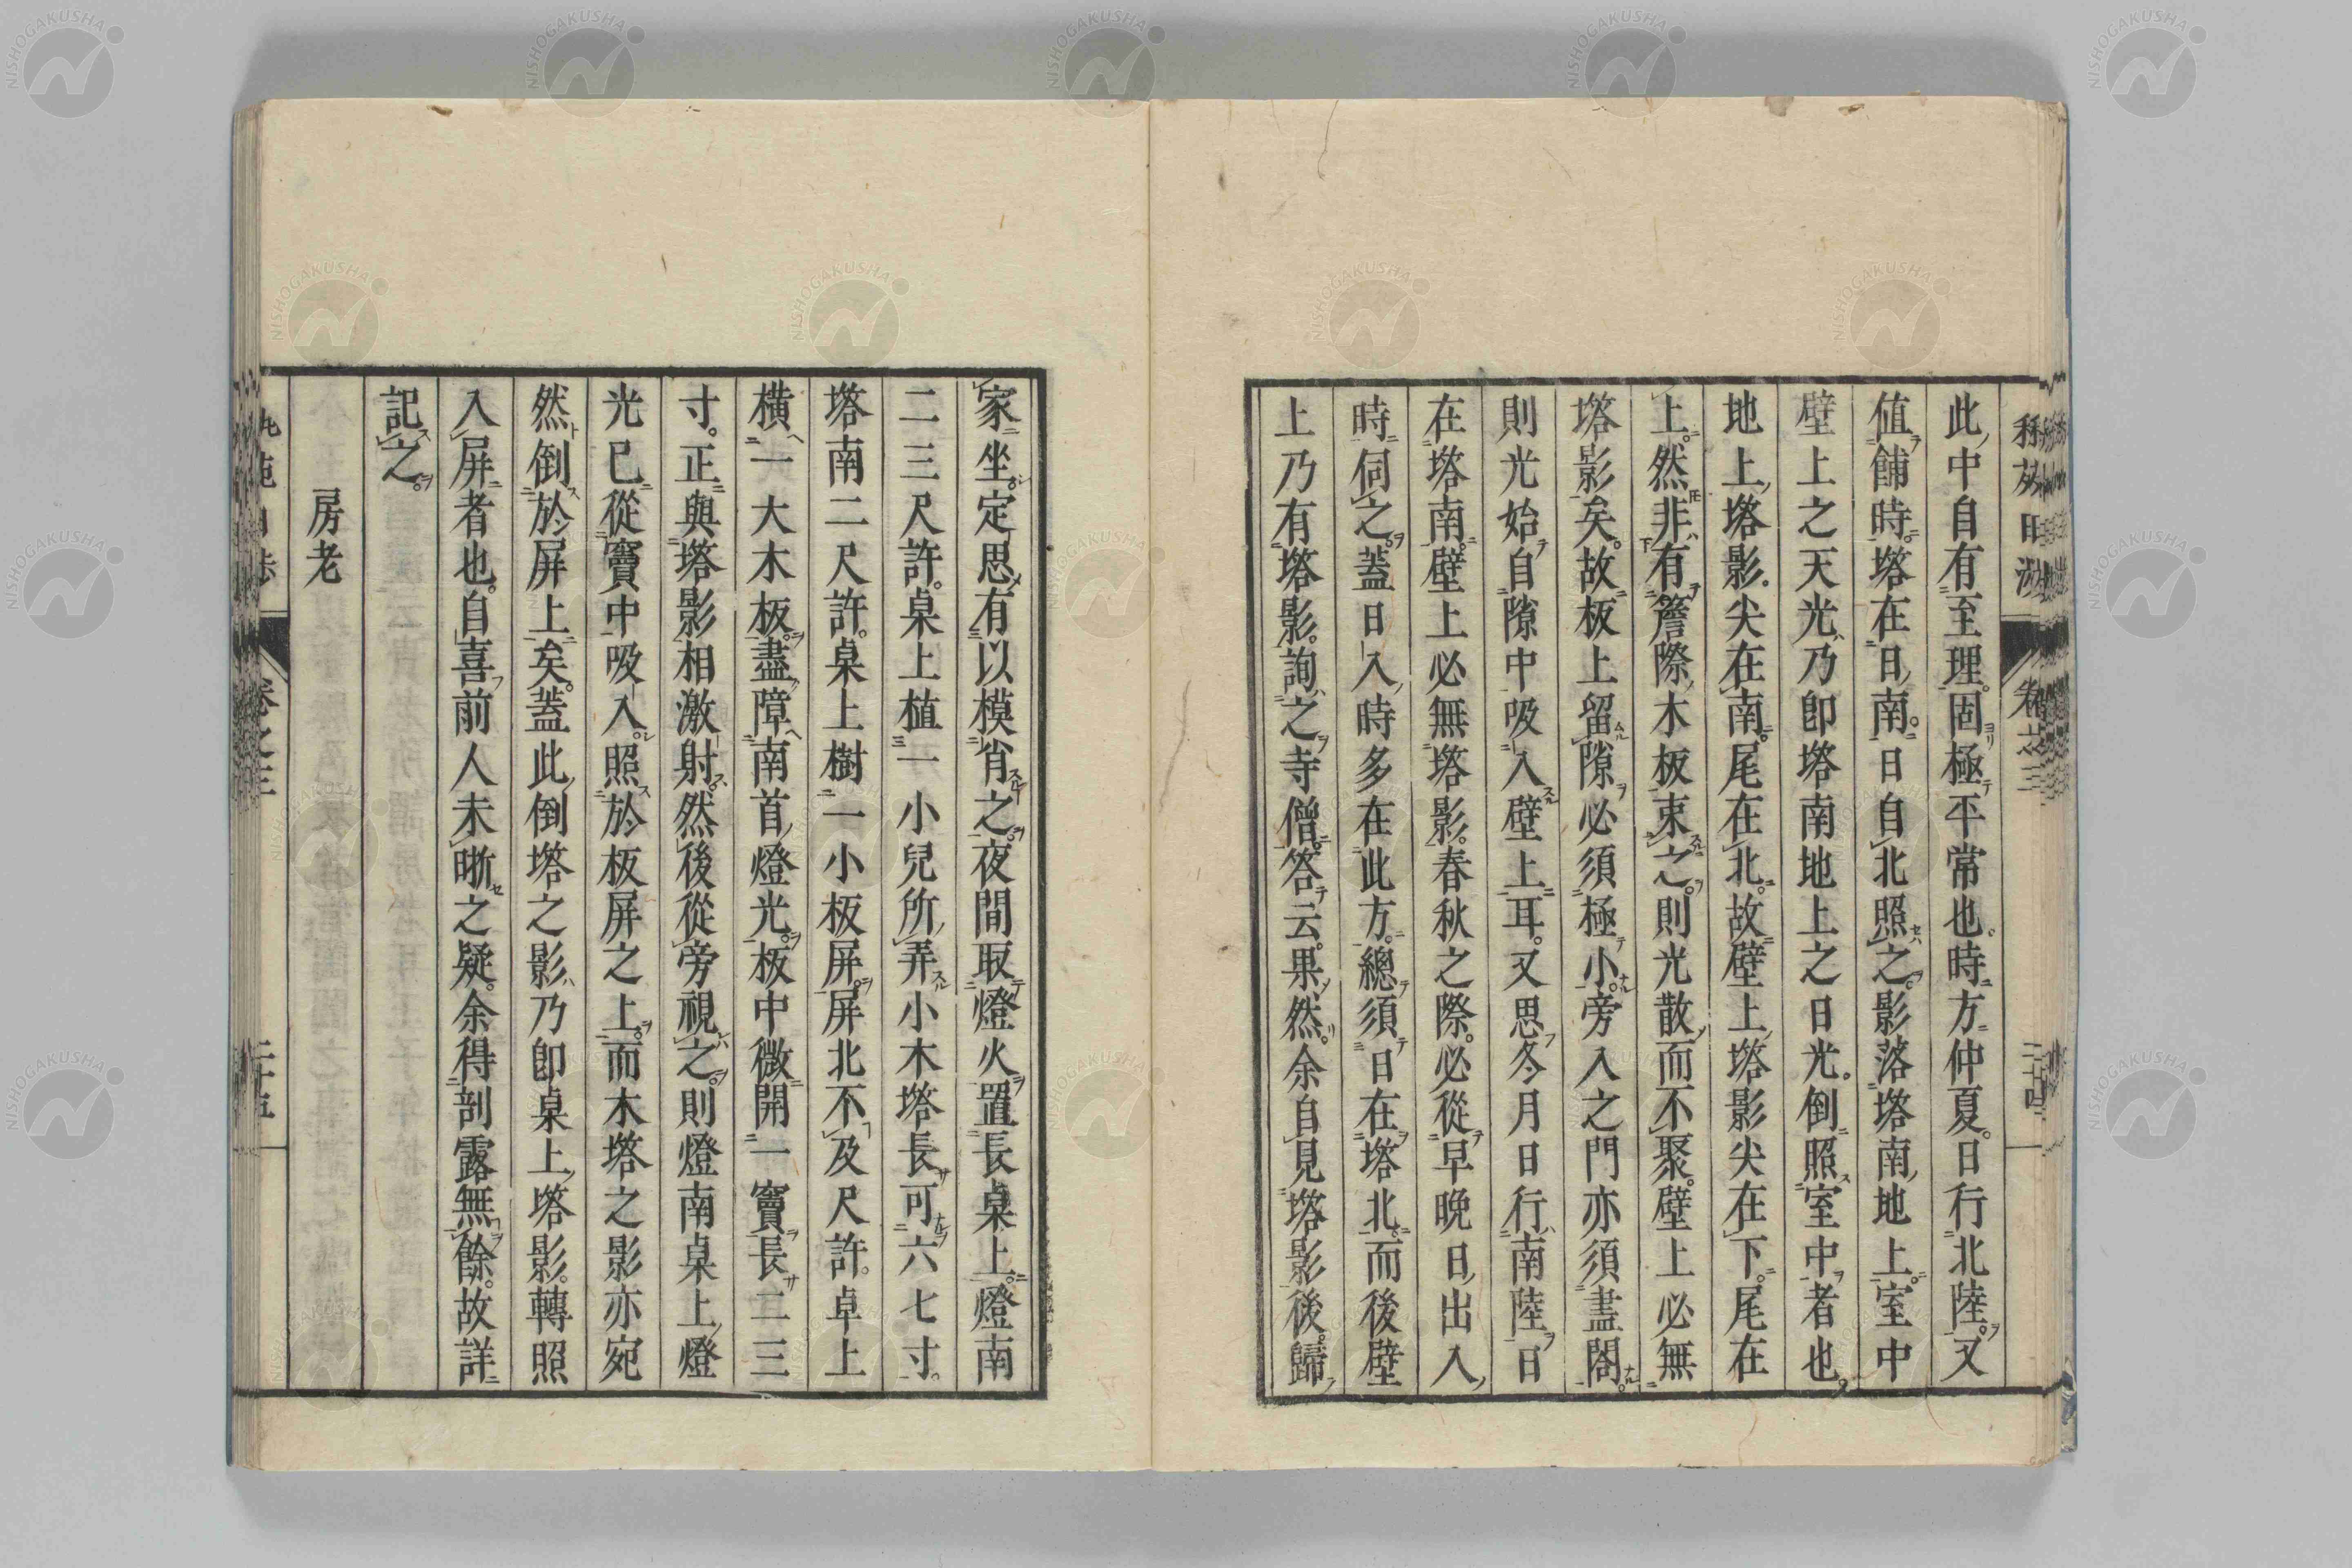 此中自有至理固極平常也時方仲夏日行北陸又
值餔時塔在日南日自北照之影落塔南地上室中
壁上之天光乃卽塔南地上之日光倒照室中者也
地上塔影尖在南尾在北故壁上塔影尖在下尾在
上然非有簷際木板束之則光散而不聚壁上必無
塔影矣故板上留隙必須極小旁入之門亦須盡閤
則光始自隙中吸入壁上耳又思冬月日行南陸日
在塔南壁上必無塔影春秋之際必從早晚日出入
時伺之蓋日入時多在此方總須日在塔北而後壁
上乃有塔影詢之寺僧答云果然余自見塔影後歸
卷之三
家坐定思有以模肖之夜間取燈火置長桌上燈南
二三尺許桌上植一小兒所弄小木塔長可六七寸
塔南二尺許桌上樹一小板屏屏北不及尺許卓上
橫一大木板盡障南首燈光板中微開一竇長二三
寸正與塔影相激射然後從旁視之則燈南桌上燈
光已從竇中吸入照於板屏之上而木塔之影亦宛
然倒於屏上矣蓋此倒塔之影乃卽桌上塔影轉照
入屏者也自喜前人未晰之疑余得剖露無餘故詳
記之
房老
NISHOGAKUSHA